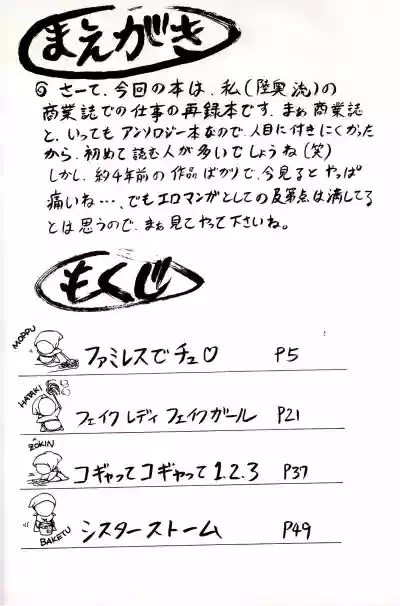 まえがき
◎ さーて、今回の本は、私(陸奥流)の
商業誌での仕事の再録本です。まぁ商業誌
と、いってもアンソロジー本なので、人目に付きにくかった
から、初めて読む人が多いでしょうね(笑)
しかし、約4年前の作品ばかりで、今見るとやっぱ
痛いね…、でもエロマンガとしての及第点は満してる
とは思うので、まぁ見てやって下さいね。
もくじ
MOPPU
ファミレスでチュ♡ P5
HATAKI
フェイク レディ フェイクガール P21
ZŌKIN
コギャってコギャって1.2.3 P37
BAKETU
シスターストーム P49